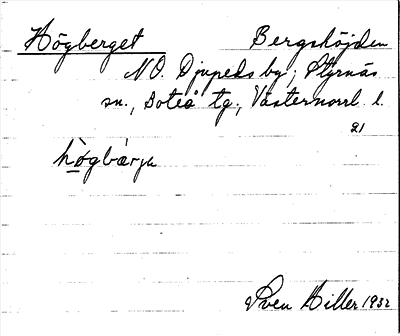 Högberget Bergshöjden
N.O. Djupeds by, Styrnäs
sn., Boteå tg., Västernorrl. l.
21
hògbærje
Sven Hiller 1932